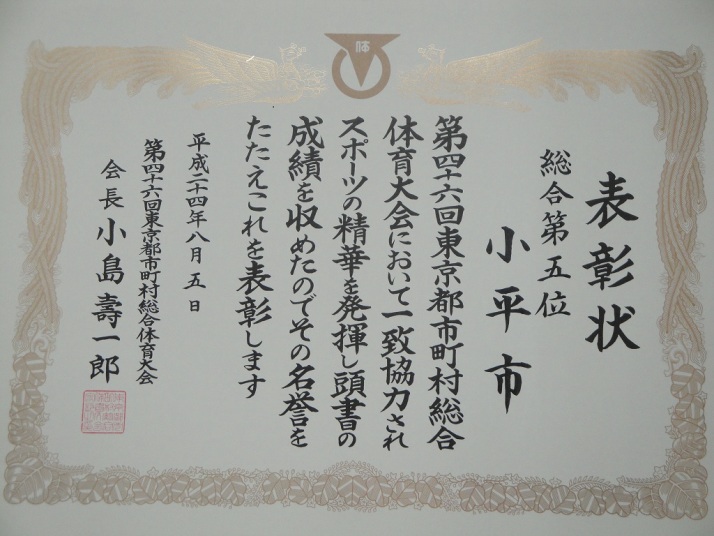 体
表彰状
総合第五位
小平市
第四十六回東京都市町村総合
体育大会において一致協力され
スポーツの精華を発揮し頭書の
成績を収めたのでその名誉を
たたえこれを表彰します
平成二十四年八月五日
第四十六回東京都市町村総合体育大会
会長 小島壽一郎